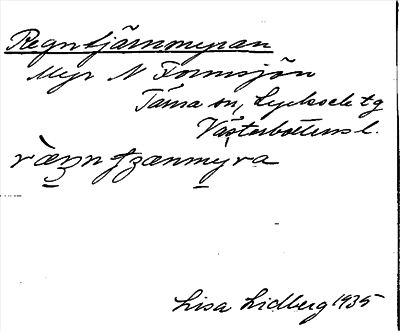 Regntjärnmyran
Myr N Formsjön
Tärna sn, Lycksele tg
Västerbottens l.
Lisa Lidberg 1935